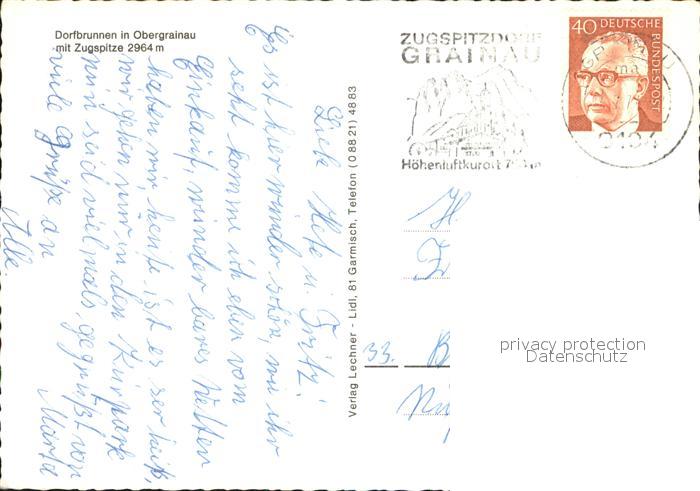 Dorfbrunnen in Obergrainau
mit Zugspitze 2964 m
ZUGSPITZDORF
GRAINAU
Höhenluftkurort
40 DEUTSCHE
BUNDESPOST
8104
Verlag Lechner - Lidl, 81 Garmisch, Telefon (0 88 21) 48 83
Liebe u. Fritz!
Es ist hier wunder schön, wie ihr
seht komme ich eben vom
Einkauf, wunder bares Wetter
haben wir, heute ist es ser heiß,
wir gehen nur in den Kurpark
nun seid vielmals gegrüßt von
Marta
viele Grüße an
Alle
33. B
privacy protection
Datenschutz